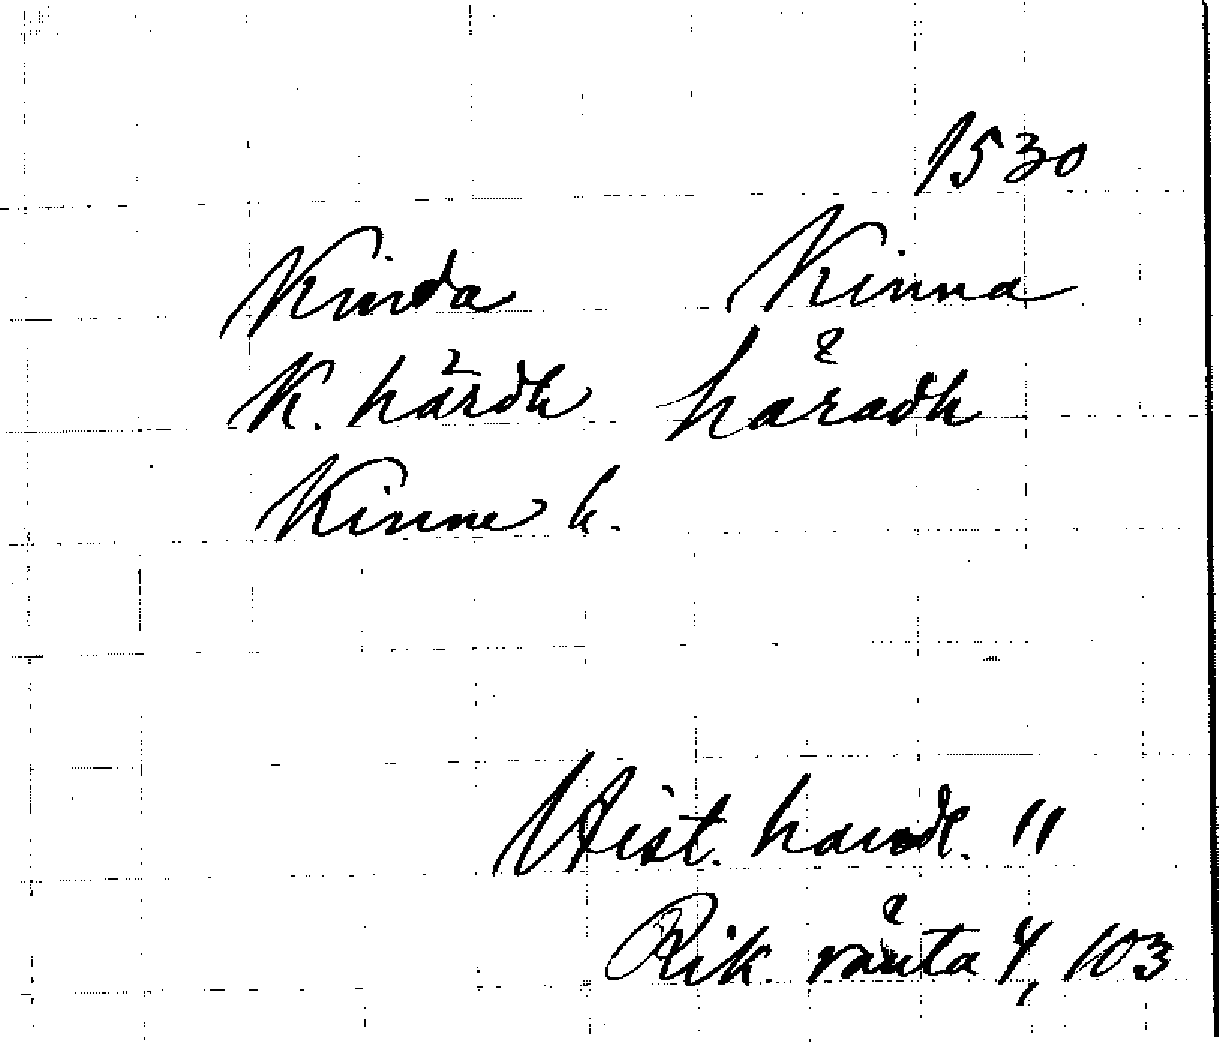 1530
Kinda Kinna
K. härdh haͤradh
Kinne h.
Hist. handl. 11
Rik. raͤnta 4, 103